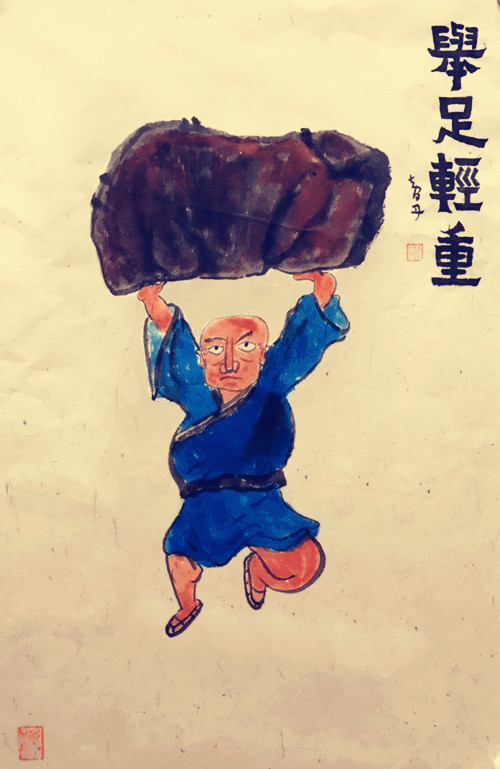 舉足輕重